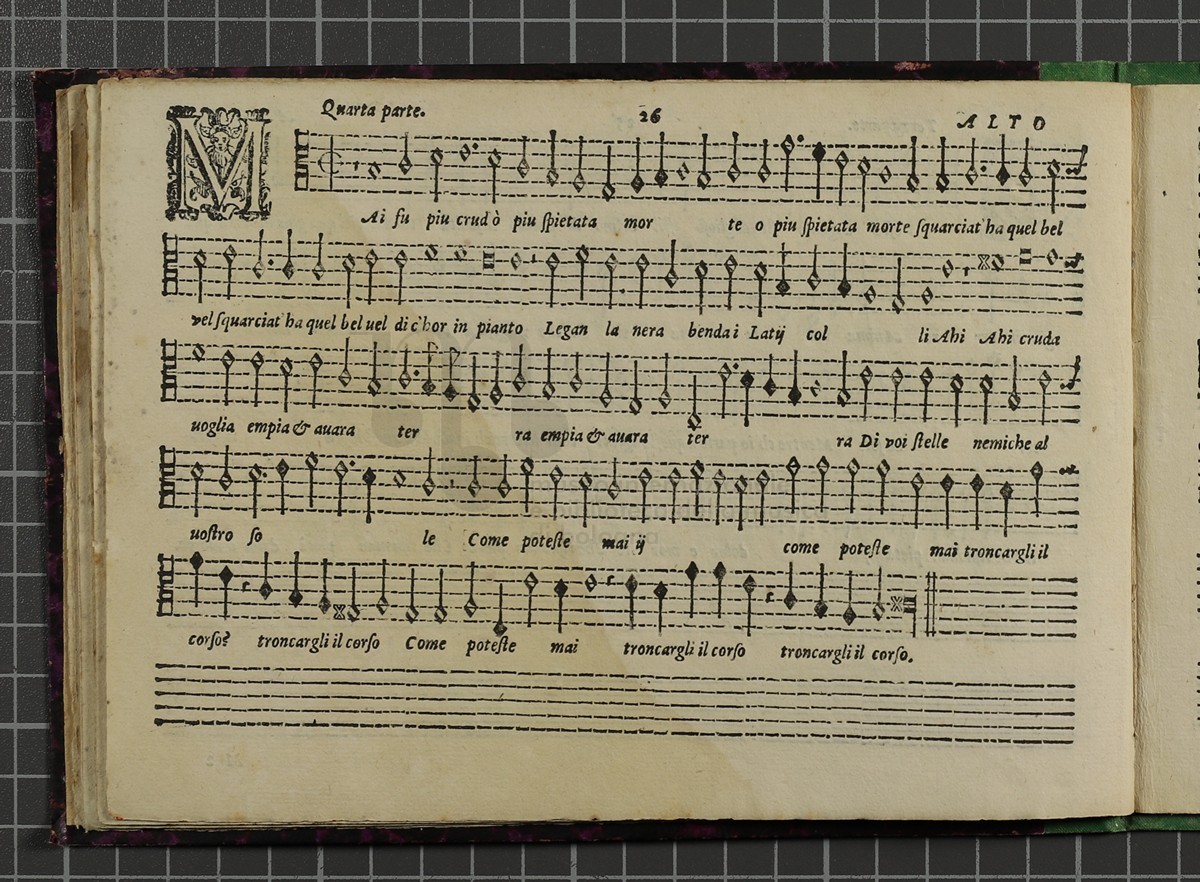 Quarta parte.
26
ALTO
MAi fu piu crud ò piu ſpietata mor te o piu ſpietata morte ſquarciat' ha quel bel
vel ſquarciat' ha quel bel uel di c'hor in pianto Legan la nera benda i Latij col li Ahi Ahi cruda
uoglia empia & auara ter ra empia & auara ter ra Di voi ſtelle nemiche al
uoſtro ſo le Come poteſte mai ij come poteſte mai troncargli il
corſo? troncargli il corſo Come poteſte mai troncargli il corſo troncargli il corſo.